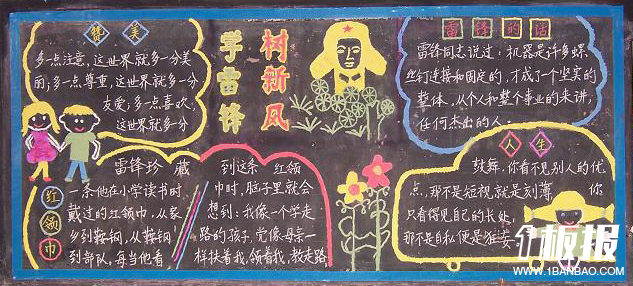 赞美
多点注意,这世界就多一分美
丽;多点尊重,这世界就多一分
友爱;多点喜欢,
这世界就多一分
学雷锋
树新风
雷锋的话
雷锋同志说过:机器是许多螺
丝钉连接和固定的,才成了一个坚实的
整体,从个人和整个事业的来讲,
任何杰出的人
雷锋珍藏
红领巾
一条他在小学读书时
戴过的红领巾,从家
乡到鞍钢,从鞍钢
到部队,每当他看
到这条红领
巾时,脑子里就会
想到:我像一个学走
路的孩子,党像母亲一
样扶着我,领着我,教走路
人生
鼓舞,你看不见别人的优
点,那不是短视就是刻薄,你
只看得见自己的长处,
那不是自私便是狂妄
板报
WWW.1BANBAO.COM